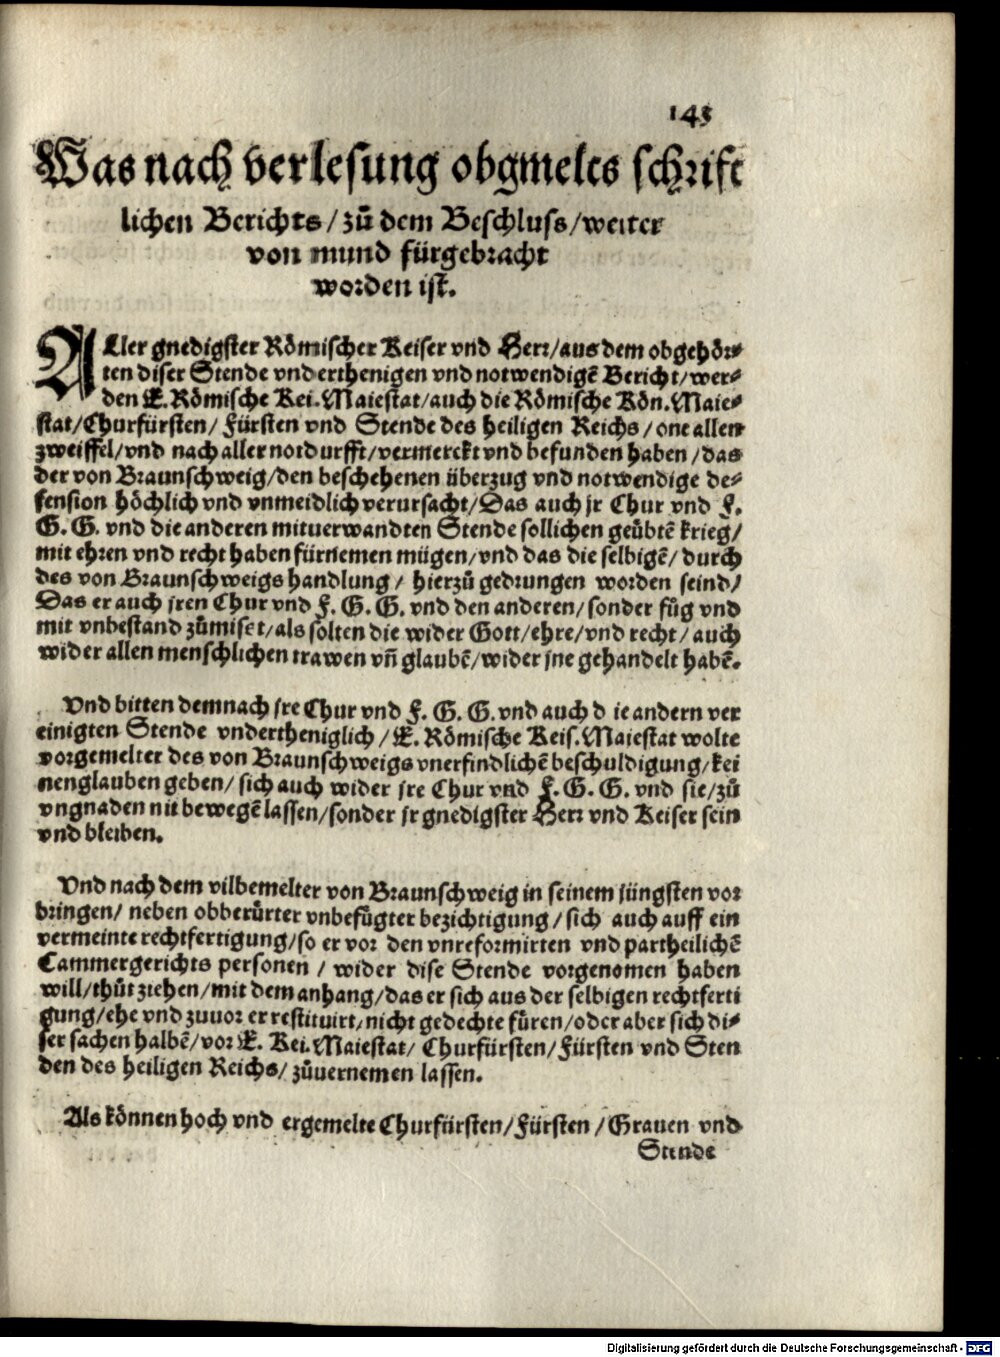 143
Was nach verlesung obgmelts schrift
lichen Berichts/zů dem Beschluss/weiter
von mund fürgebracht
worden ist.
ALler gnedigster Römischer Keiser vnd Herr/aus dem obgehör⸗
ten diser Stende vnderthenigen vnd notwendigē Bericht/wer⸗
den E. Römische Kei. Maiestat/auch die Römische Kön. Maie⸗
stat/Churfürsten/ Fürsten vnd Stende des heiligen Reichs/one allen
zweiffel/vnd nach aller notdurfft/vermerckt vnd befunden haben/das
der von Braunschweig/den beschehenen überzug vnd notwendige de⸗
fension höchlich vnd vnmeidlich verursacht/Das auch jr Chur vnd F.
G. G. vnd die anderen mituerwandten Stende sollichen geübtē krieg/
mit ehren vnd recht haben fürnemen mügen/vnd das die selbigē/ durch
des von Braunschweigs handlung/ hierzů gedrungen worden seind/
Das er auch jren Chur vnd F. G. G. vnd den anderen/sonder fůg vnd
mit vnbestand zůmiset/als solten die wider Gott/ehre/vnd recht/auch
wider allen menschlichen trawen vñ glaubē/wider jne gehandelt habē.
Vnd bitten demnach jre Chur vnd F. G. G. vnd auch d ie andern ver
einigten Stende vndertheniglich/E. Römische Keis. Maiestat wolte
vorgemelter des von Braunschweigs vnerfindlichē beschuldigung/kei
nenglauben geben/ sich auch wider jre Chur vnd F. G. G. vnd sie/zů
vngnaden nit bewegē lassen/sonder jr gnedigster Herr vnd Keiser sein
vnd bleiben.
Vnd nach dem vilbemelter von Braunschweig in seinem jüngsten vor
bringen/ neben obberůrter vnbefůgter bezichtigung/sich auch auff ein
vermeinte rechtfertigung/so er vor den vnreformirten vnd partheilichē
Cammergerichts personen/ wider dise Stende vorgenomen haben
will/thůt ziehen/mit dem anhang/das er sich aus der selbigen rechtferti
gung/ehe vnd zuuor er restituirt/nicht gedechte fůren/oder aber sich di⸗
ser sachen halbē/vor E. Kei. Maiestat/ Churfürsten/Fürsten vnd Sten
den des heiligen Reichs/zůuernemen lassen.
Als können hoch vnd ergemelte Churfürsten/Fürsten/Grauen vnd
Stende
Digitalisierung gefördert durch die Deutsche Forschungsgemeinschaft - DFG